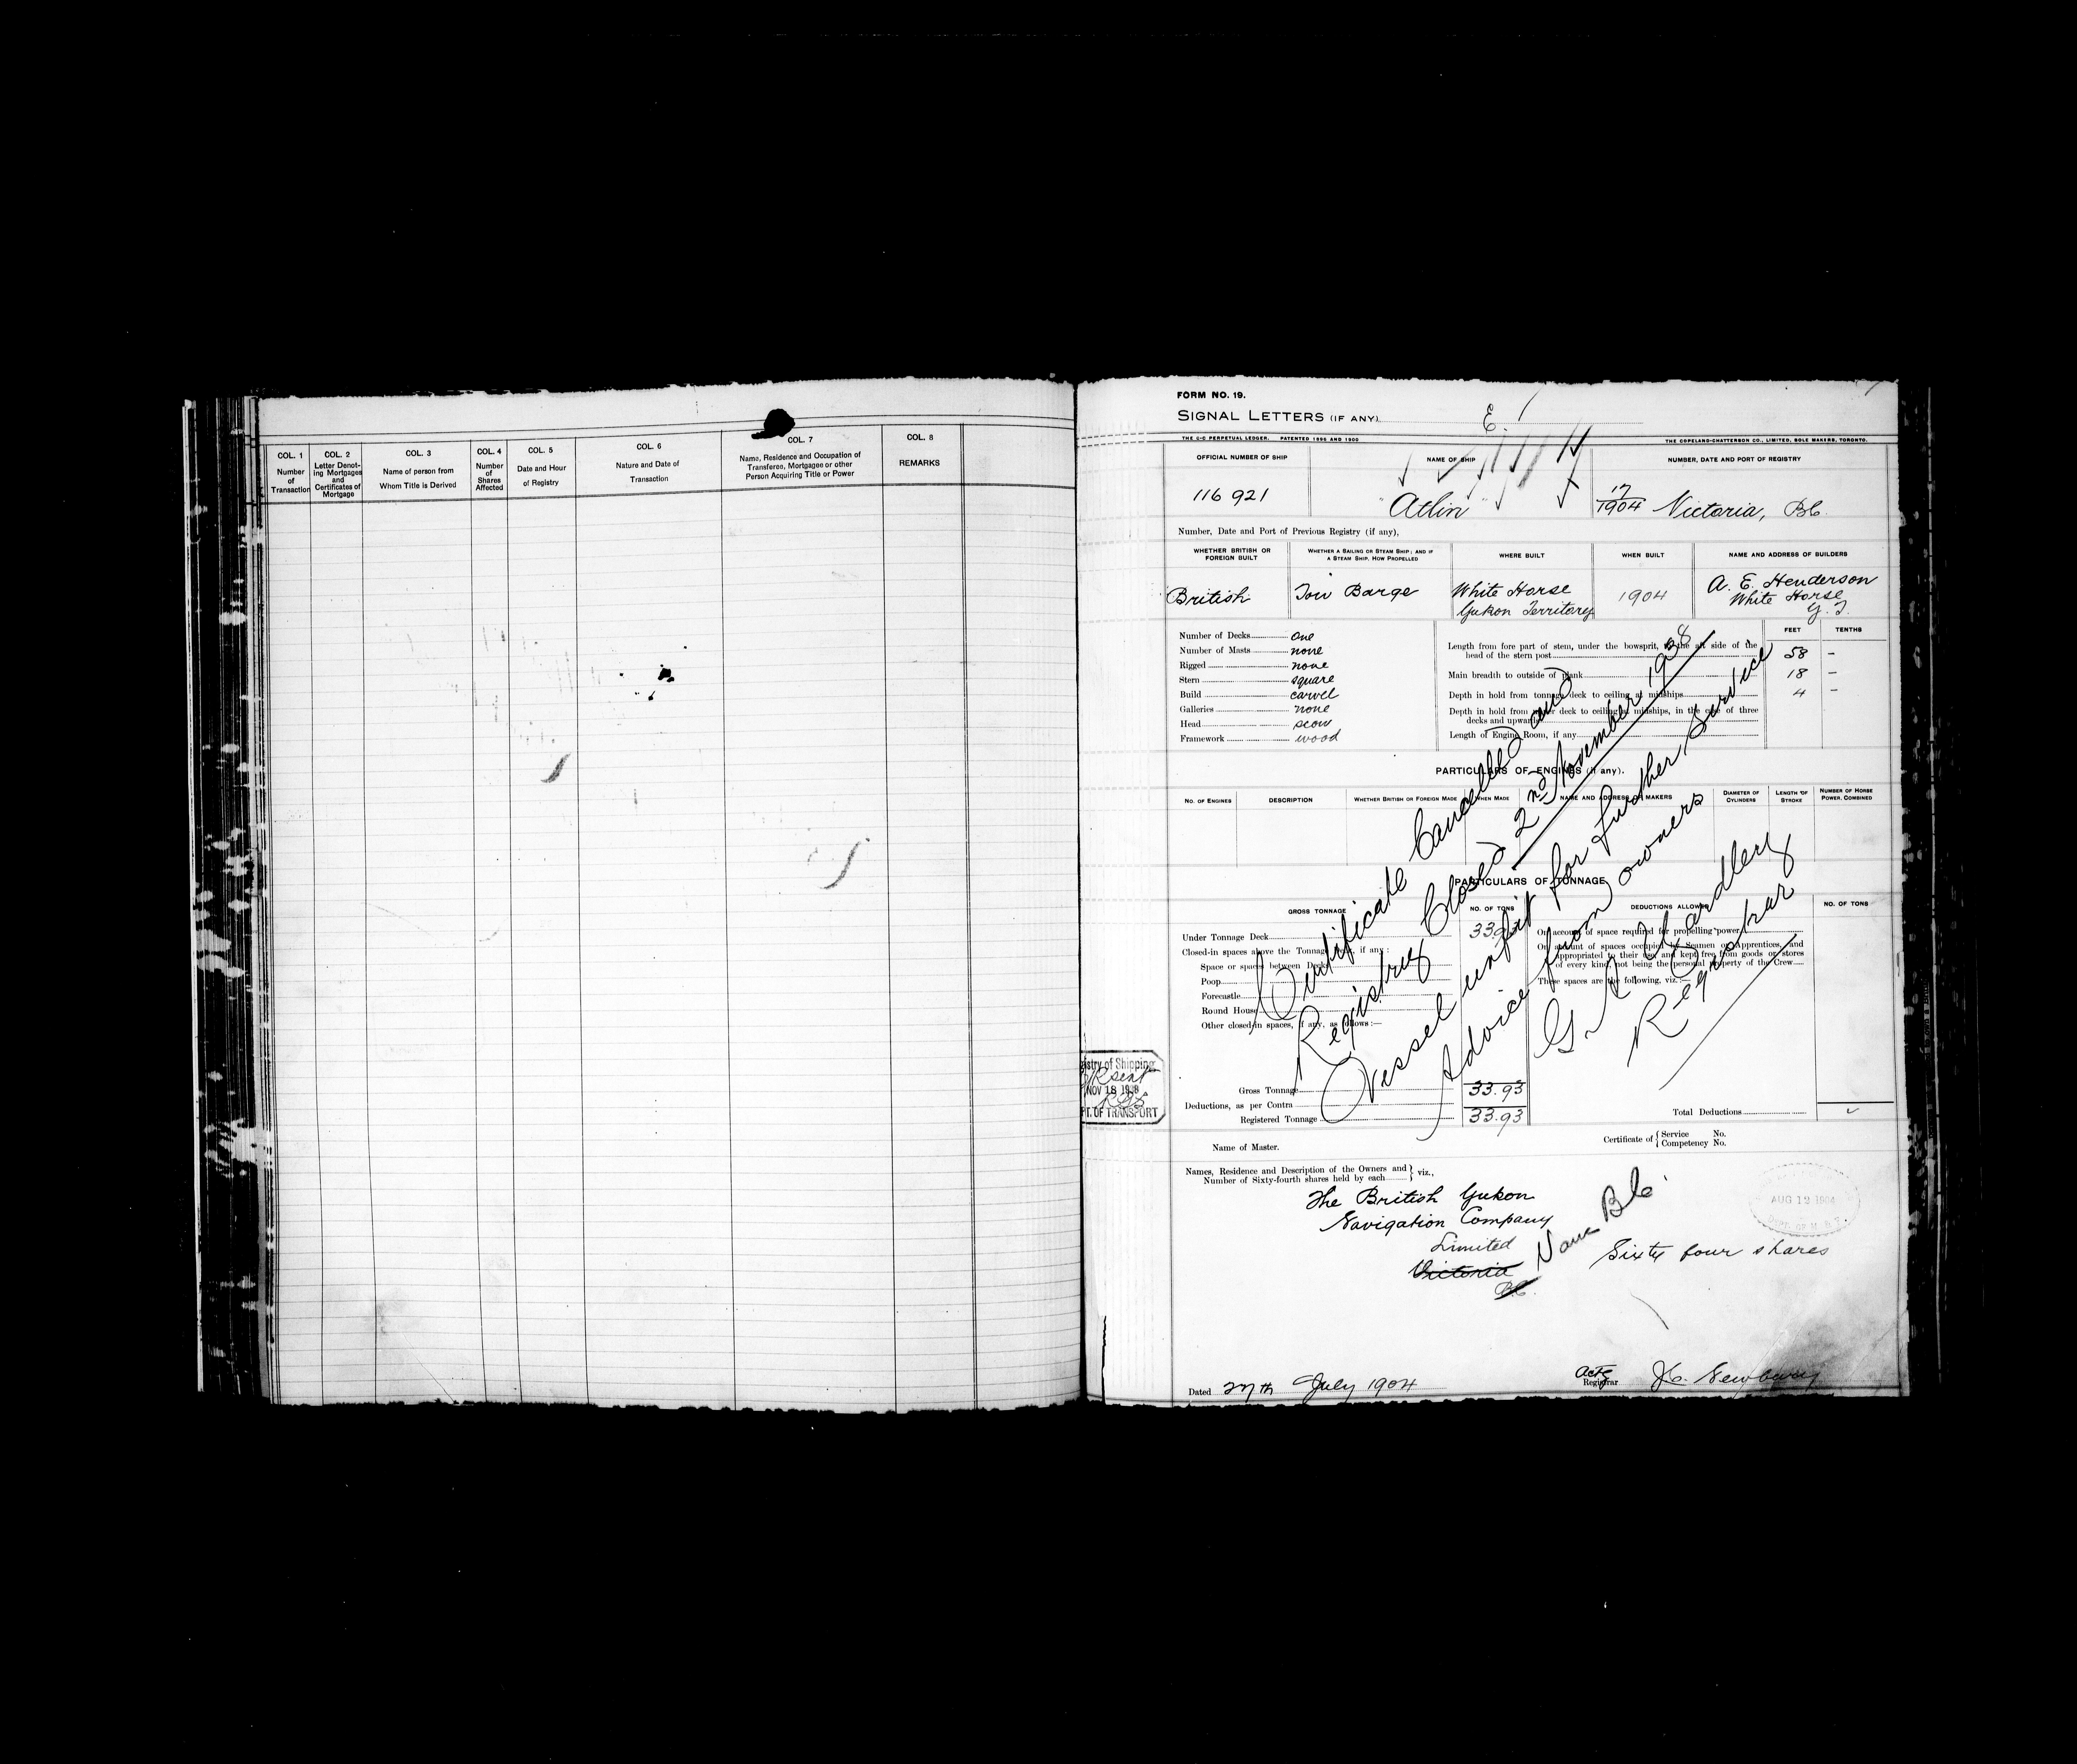 COL. 1
Number
of
Transaction
COL. 2
Letter Denot-
ing Mortgages
and
Certificates of
Mortgage
COL. 3
Name of person from
Whom Title is Derived
COL. 4
Number
of
Shares
Affected
COL. 5
Date and Hour
of Registry
COL. 6
Nature and Date of
Transaction
COL. 7
Name, Residence and Occupation of
Transferee, Mortgagee or other
Person Acquiring Title or Power
COL. 8
REMARKS
FORM NO. 19.
SIGNAL LETTERS (IF ANY) E.
THE C-C PERPETUAL LEDGER. PATENTED 1896 AND 1900
THE COPELAND-CHATTERSON CO., LIMITED, SOLE MAKERS, TORONTO.
OFFICIAL NUMBER OF SHIP
NAME OF SHIP
NUMBER, DATE AND PORT OF REGISTRY
116 921
"Atlin"
17
1904 Victoria, B.C.
Number, Date and Port of Previous Registry (if any),
WHETHER BRITISH OR
FOREIGN BUILT
WHETHER A SAILING OR STEAM SHIP; AND IF
A STEAM SHIP, HOW PROPELLED
WHERE BUILT
WHEN BUILT
NAME AND ADDRESS OF BUILDERS
British
Tow Barge
White Horse
Yukon Territory
1904
A. E. Henderson
White Horse
Y. T.
FEET TENTHS
Number of Decks one
Number of Masts none
Rigged none
Stern square
Build carvel
Galleries none
Head scow
Framework wood
Length from fore part of stem, under the bowsprit, to the aft side of the
head of the stern post 58 –
Main breadth to outside of plank 18 –
Depth in hold from tonnage deck to ceiling at midships 4 –
Depth in hold from upper deck to ceiling at midships, in the case of three
decks and upwards
Length of Engine Room, if any
PARTICULARS OF ENGINES (if any).
NO. OF ENGINES
DESCRIPTION
WHETHER BRITISH OR FOREIGN MADE
WHEN MADE
NAME AND ADDRESS OF MAKERS
DIAMETER OF
CYLINDERS
LENGTH OF
STROKE
NUMBER OF HORSE
POWER, COMBINED
Certificate Cancelled and
Registry Closed 2nd November 1938
Vessel unfit for further service
Advice from owners
Registrar
PARTICULARS OF TONNAGE
GROSS TONNAGE
NO. OF TONS
DEDUCTIONS ALLOWED
NO. OF TONS
Under Tonnage Deck 33.93
Closed-in spaces above the Tonnage Deck, if any:
Space or spaces between Decks
Poop
Forecastle
Round House
Other closed-in spaces, if any, as follows:—
On account of space required for propelling power
On account of spaces occupied by Seamen or Apprentices, and
appropriated to their use, and kept free from goods or stores
of every kind, not being the personal property of the Crew
These spaces are the following, viz.:—
Gross Tonnage 33.93
Deductions, as per Contra
Registered Tonnage 33.93
Total Deductions
istry of Shipping
NOV 18 1938
PT. OF TRANSPORT
Name of Master.
Certificate of { Service No.
Competency No.
Names, Residence and Description of the Owners and } viz.,
Number of Sixty-fourth shares held by each
The British Yukon
Navigation Company
Limited
Victoria
B.C.
Vanc B.C.
AUG 12 1904
DEPT. OF M. & F.
Sixty four shares
Dated 27th July 1904
Actg
Registrar
J.C. Newbury